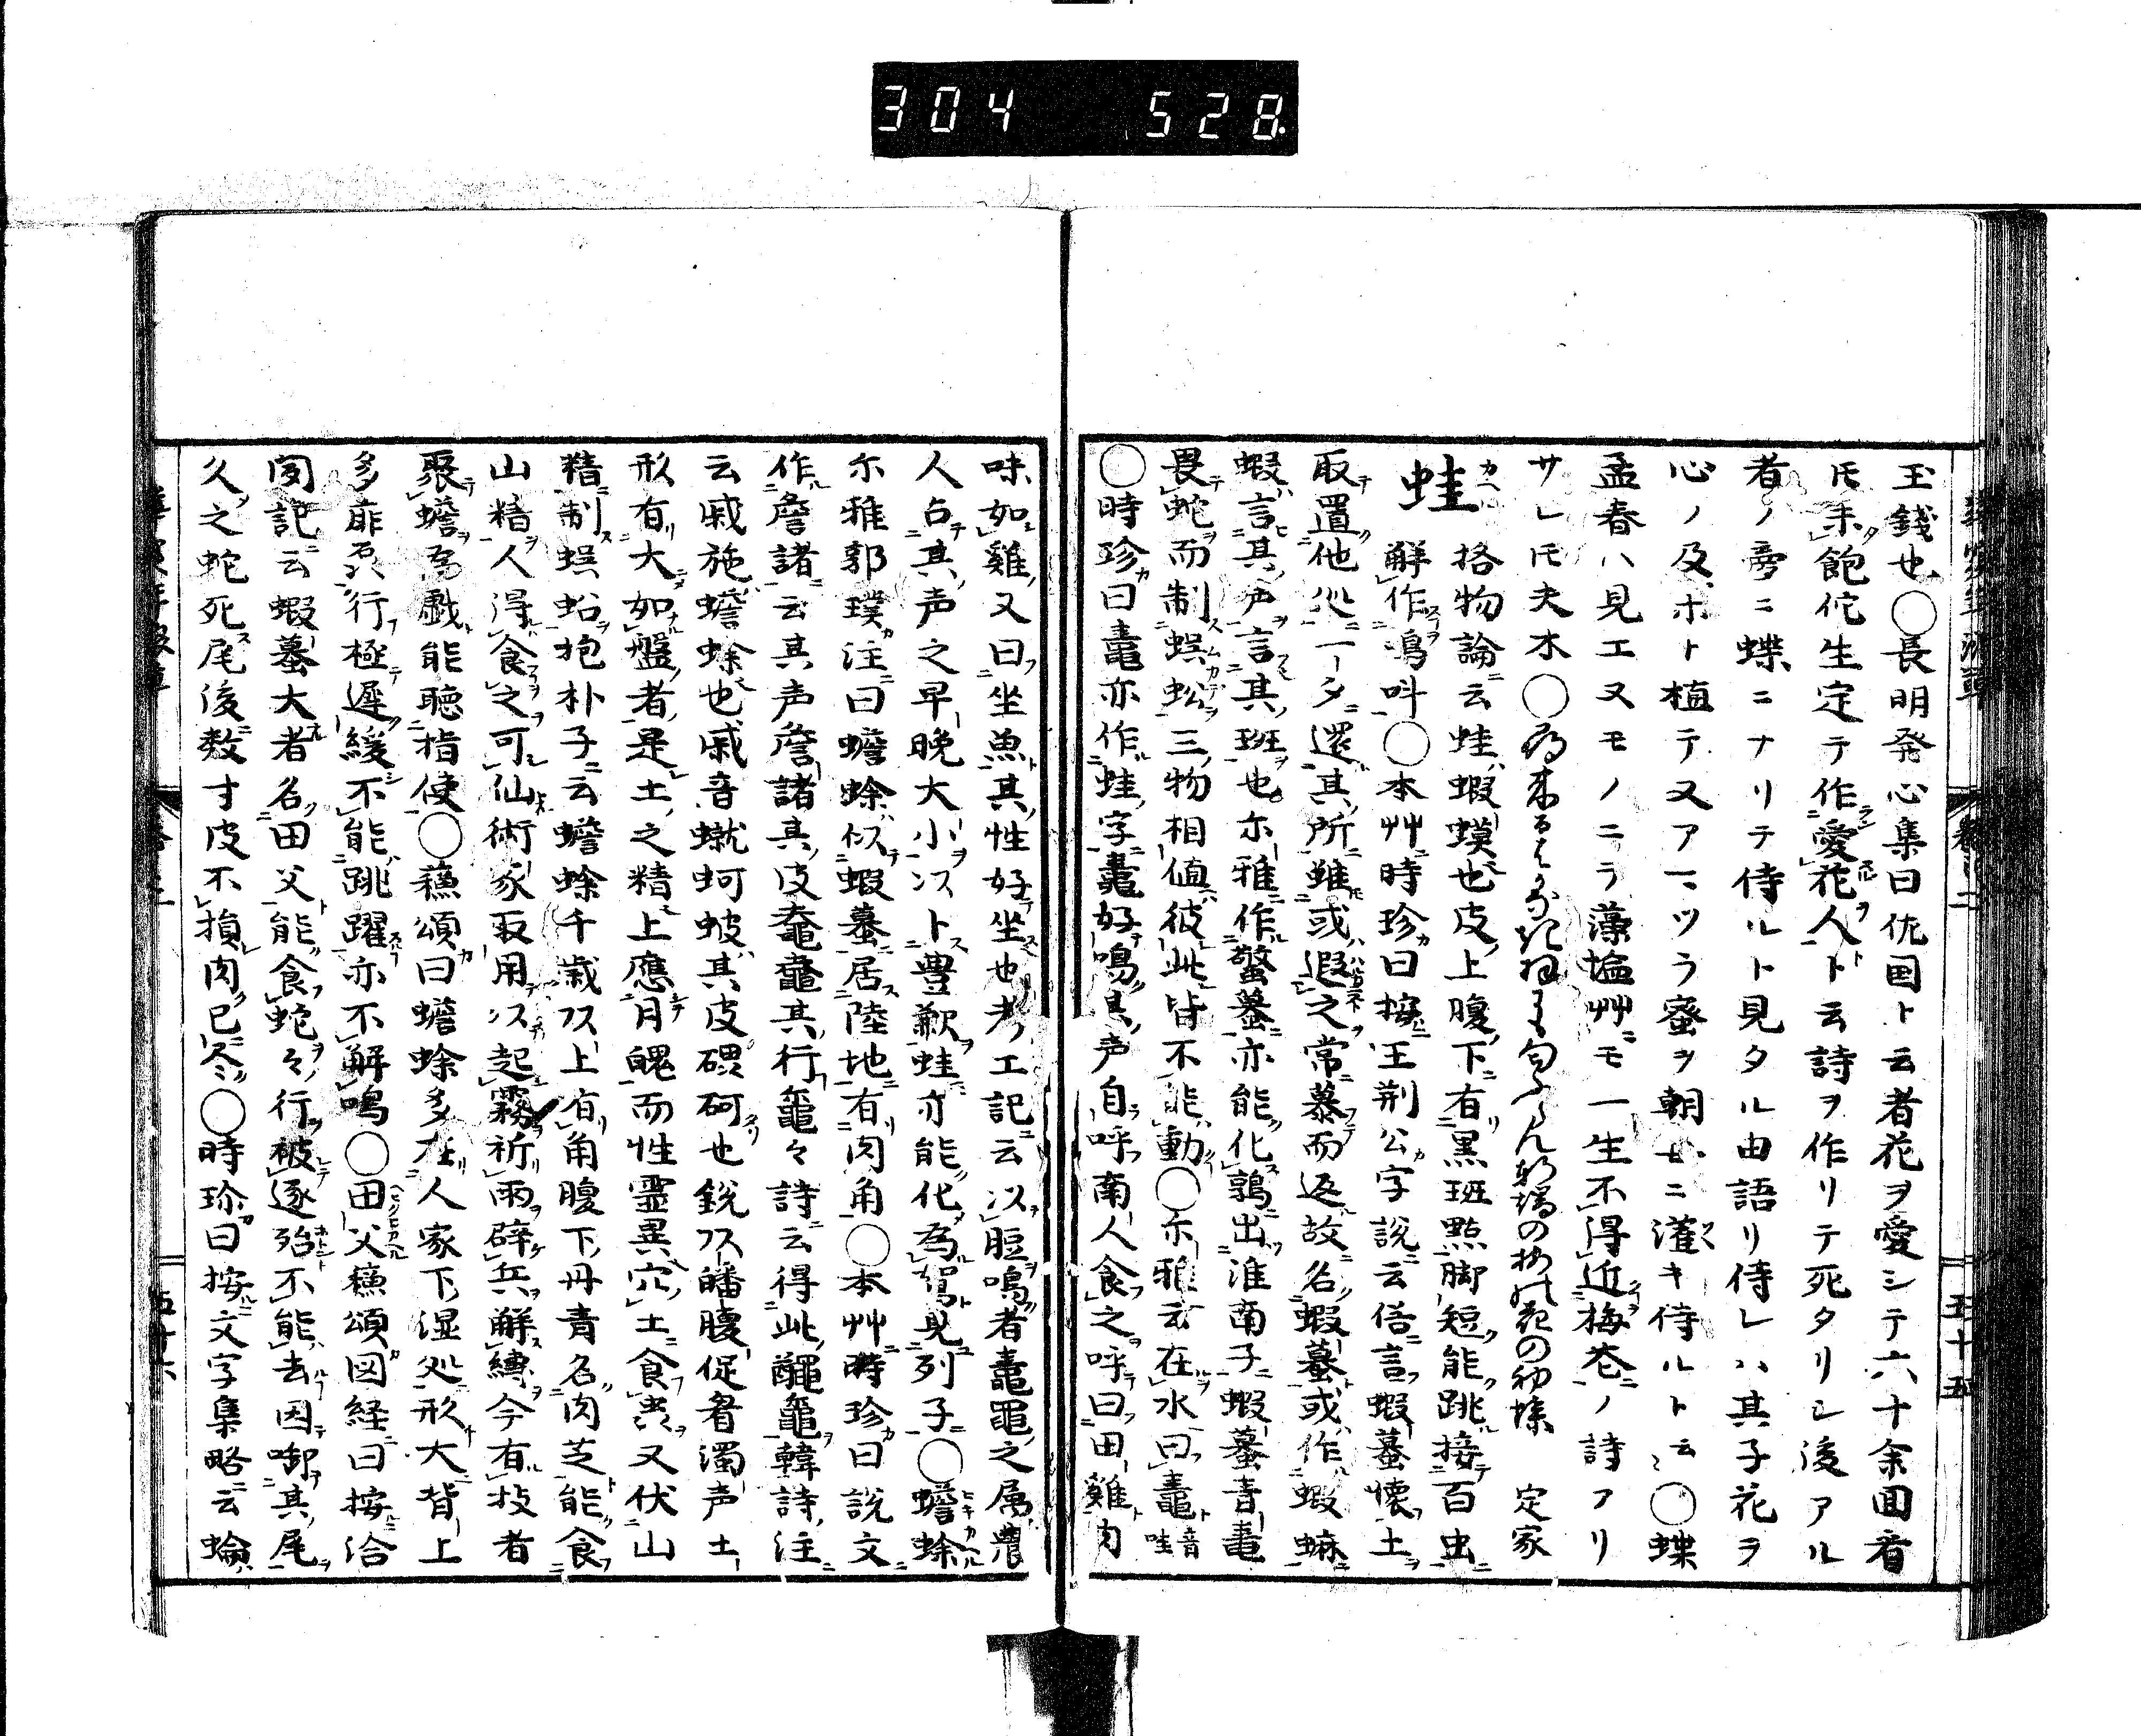 304 528
玉錢也○長明発心集曰佐国ト云者花ヲ愛シテ六十余回看
トモ未飽佗生定テ作愛花人ト云詩ヲ作リテ死タリシ後アル
者ノ夢ニ蝶ニナリテ侍ルト見タル由語リ侍レハ其子花ヲ
心ノ及ホト植テ又アマツラ蜜ヲ朝ニ灌キ侍ルト云○蝶
孟春ハ見エヌモノニヲ藻塩艸ニモ一生不得近梅花ノ詩アリ
サレトモ夫木○ 定家
蛙 格物論云蛙蝦蟆也皮上腹下有黒班點脚短能跳接百虫
解作鳴呌○本艸時珍曰按王荆公字說云俗言蝦蟇懷土
取置他処一夕還其所雖或遐之常慕而返故名蝦蟇或作蝦蟆
蝦言其声言其班也尓雅作蟼蟇亦能化鶉出淮南子蝦蟇青鼃
畏蛇而制蜈蚣三物相値彼此皆不能動○尓雅云在水曰鼃音哇
○時珍曰鼃亦作蛙字鼃好鳴其声自呼南人食之呼曰田雞肉
五十五
味如雞又曰坐魚其性好坐也考工記云以脰鳴者鼃黽之属農
人占其声之早晩大小以卜豊歉蛙亦能化為鴽見列子○蟾蜍
尓雅郭璞注曰蟾蜍似蝦蟇居陸地有肉角○本艸時珍曰說文
作詹諸云其声詹諸其皮鼀鼀其行黿々詩云得此鼀韓詩注
云戚施蟾蜍也戚音蹴蚵蚾其皮礧砢也銳頭皤腹促眉濁声土
形有大如盤者是土之精上應月魄而性霊異穴土食虫又伏山
精制蜈蚣抱朴子云蟾蜍千歳頭上有角腹下丹書名肉芝能食
山精人得食之可仙術家取用以起霧祈雨辟兵解縛今有技者
聚蟾為戯能聴指使○蘓頌曰蟾蜍多在人家下湿処形大背上
多痱磊行極遲緩不能跳躍亦不解鳴○田父蘓頌図経曰按洽
聞記云蝦蟇大者名田父能食蛇々行被逐殆不能去因啣其尾
久之蛇死尾後数寸皮不損肉已尽○時珍曰按文字集略云蜦